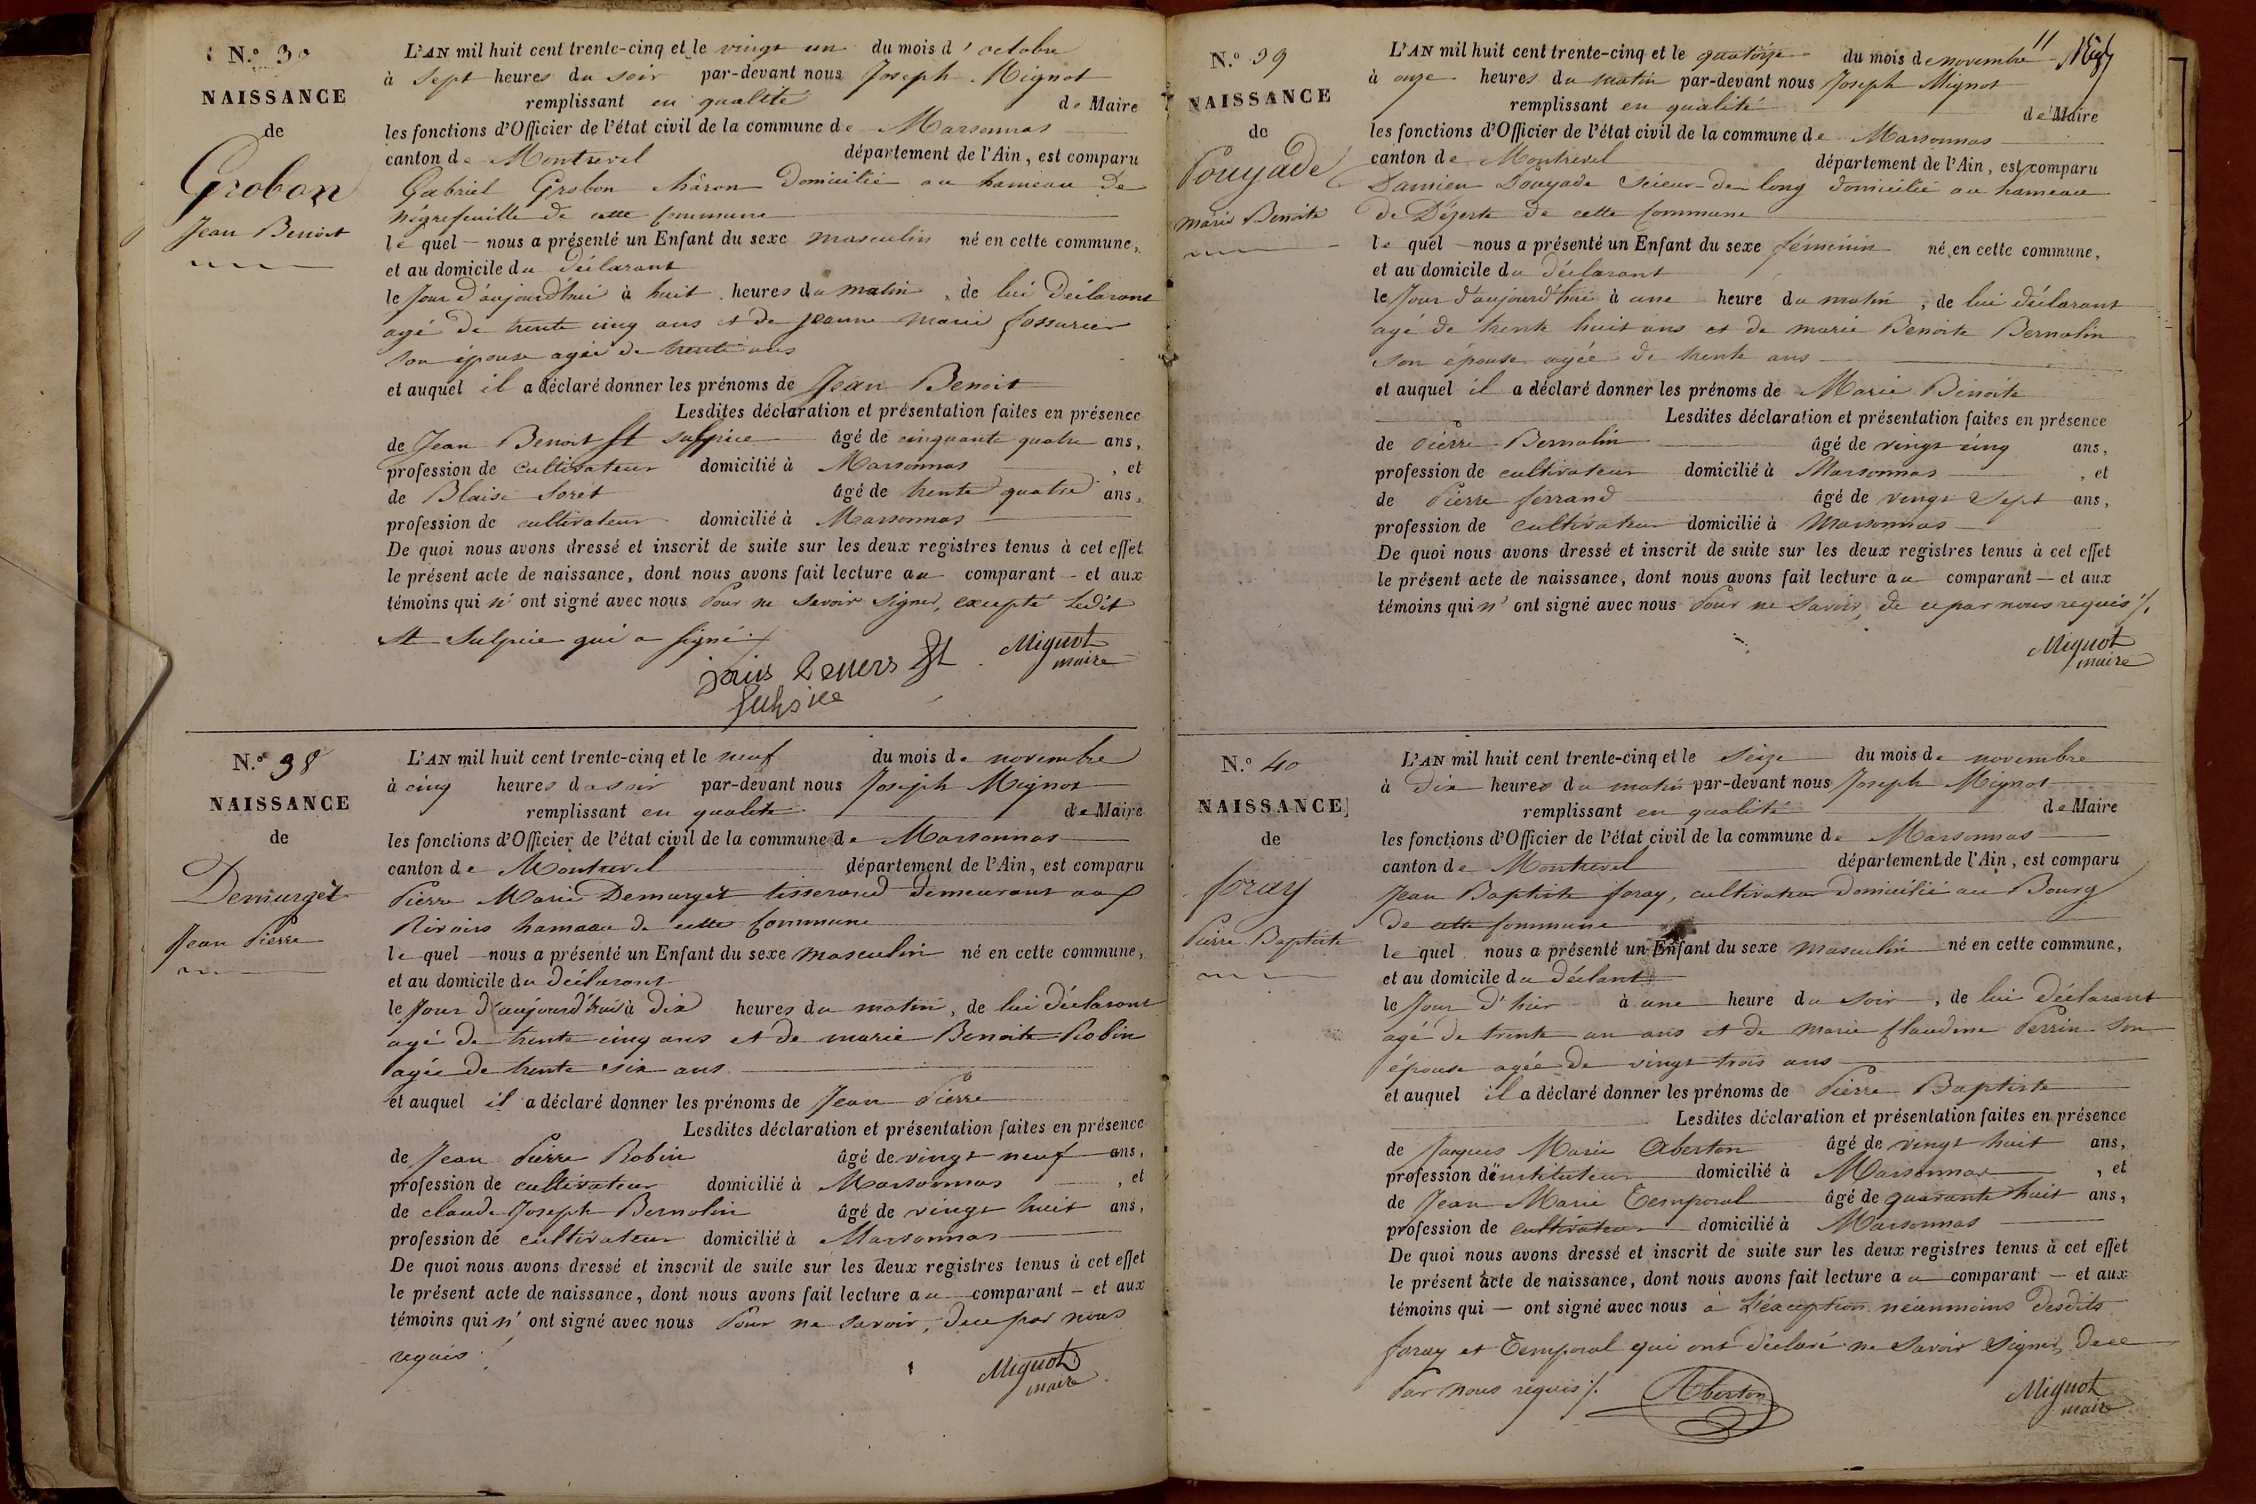 N.o 3
NAISSANCE
de
Grobon
Jean Benoit
L'AN mil huit cent trente-cinq et le vingt un du mois d' octobre
à sept heures du soir par-devant nous Joseph Mignot
remplissant en qualité de Maire
les fonctions d'Officier de l'état civil de la commune de Marsonnas
canton de Montrevel département de l'Ain, est comparu
Gabriel Grobon charon domicilié au hameau de
négrefeuille de cette commune
le quel nous a présenté un Enfant du sexe masculin né en cette commune,
et au domicile du déclarant
le Jour d'aujourd'hui à huit heures du matin, de lui déclarant
agé de trente cinq ans et de jeanne marie fossurier
son épouse agée de trente ans
et auquel il a déclaré donner les prénoms de Jean Benoit
Lesdites déclaration et présentation faites en présence
de Jean Benoit St sulpice âgé de cinquante quatre ans,
profession de cultivateur domicilié à Marsonnas, et
de Blaise Soret âgé de trente quatre ans,
profession de cultivateur domicilié à Marsonnas
De quoi nous avons dressé et inscrit de suite sur les deux registres tenus à cet effet
le présent acte de naissance, dont nous avons fait lecture au comparant - et aux
témoins qui n' ont signé avec nous Pour ne savoir signer, excepté ledit
St Sulpice qui a signé ./.
Mignot
maire
N.o 38
NAISSANCE
de
Demurget
Jean Pierre
L'AN mil huit cent trente-cinq et le neuf du mois de novembre
à cinq heures du soir par-devant nous Joseph Mignot
remplissant en qualité de Maire
les fonctions d'Officier de l'état civil de la commune de Marsonnas
canton de Montrevel département de l'Ain, est comparu
Pierre Marie Demurget tisserand demeurant au
Rivoirs hameau de cette commune
le quel nous a présenté un Enfant du sexe masculin né en cette commune,
et au domicile du déclarant
le Jour d'aujourd'hui à dix heures du matin, de lui déclarant
agé de trente cinq ans et de marie Benoite Robin
agée de trente six ans
et auquel il a déclaré donner les prénoms de Jean Pierre
Lesdites déclaration et présentation faites en présence
de Jean Pierre Robin âgé de vingt neuf ans,
profession de cultivateur domicilié à Marsonnas, et
de claude Joseph Bernolin âgé de vingt huit ans,
profession de cultivateur domicilié à Marsonnas
De quoi nous avons dressé et inscrit de suite sur les deux registres tenus à cet effet
le présent acte de naissance, dont nous avons fait lecture au comparant - et aux
témoins qui n' ont signé avec nous Pour ne savoir, de ce par nous
requis ./.
Mignot
maire
11
N.o 39
NAISSANCE
de
Pouyade
marie Benoite
L'AN mil huit cent trente-cinq et le quatorze du mois de novembre
à onze heures du matin par-devant nous Joseph Mignot
remplissant en qualité de Maire
les fonctions d'Officier de l'état civil de la commune de Marsonnas
canton de Montrevel département de l'Ain, est comparu
Damien Pouyade scieur de long domicilié au hameau
de Déserte de cette commune
le quel nous a présenté un Enfant du sexe féminin né en cette commune,
et au domicile du déclarant
le Jour d'aujourd'hui à une heure du matin, de lui déclarant
agé de trente huit ans et de marie Benoite Bernolin
son épouse agée de trente ans
et auquel il a déclaré donner les prénoms de Marie Benoite
Lesdites déclaration et présentation faites en présence
de Pierre Bernolin âgé de vingt cinq ans,
profession de cultivateur domicilié à Marsonnas, et
de Pierre ferrand âgé de vingt sept ans,
profession de cultivateur domicilié à Marsonnas
De quoi nous avons dressé et inscrit de suite sur les deux registres tenus à cet effet
le présent acte de naissance, dont nous avons fait lecture au comparant - et aux
témoins qui n' ont signé avec nous Pour ne savoir, de ce par nous requis ./.
Mignot
maire
N.o 40
NAISSANCE
de
foray
Pierre Baptiste
L'AN mil huit cent trente-cinq et le seize du mois de novembre
à dix heures du matin par-devant nous Joseph Mignot
remplissant en qualité de Maire
les fonctions d'Officier de l'état civil de la commune de Marsonnas
canton de Montrevel département de l'Ain, est comparu
Jean Baptiste foray, cultivateur domicilié au Bourg
de cette commune
le quel nous a présenté un Enfant du sexe masculin né en cette commune,
et au domicile du déclant
le Jour d'hier à une heure du soir, de lui déclarant
agé de trente un ans et de marie Claudine Perrin son
épouse agée de vingt trois ans
et auquel il a déclaré donner les prénoms de Pierre Baptiste
Lesdites déclaration et présentation faites en présence
de Jacques Marie Aberton âgé de vingt huit ans,
profession d'instituteur domicilié à Marsonnas, et
de Jean Marie Temporal âgé de quarante huit ans,
profession de cultivateur domicilié à Marsonnas
De quoi nous avons dressé et inscrit de suite sur les deux registres tenus à cet effet
le présent acte de naissance, dont nous avons fait lecture au comparant - et aux
témoins qui - ont signé avec nous à L'exception néanmoins desdits
foray et Temporal qui ont déclaré ne savoir signer, de ce
Par nous requis ./.
Aberton
Mignot
maire